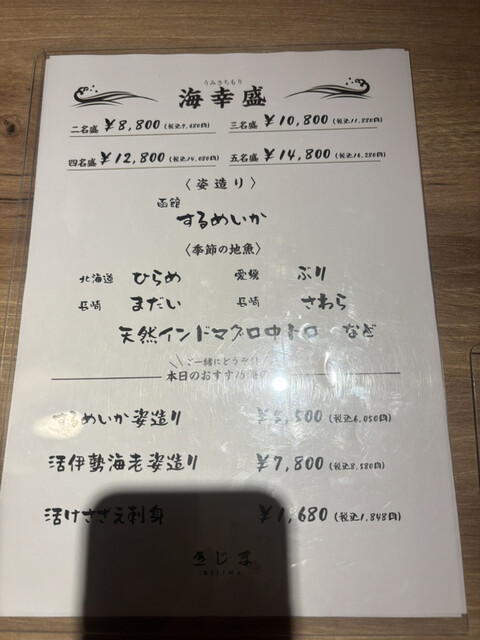 うみさちもり
海幸盛
二名盛 ¥8,800 (税込9,680円) 三名盛 ¥10,800 (税込11,880円)
四名盛 ¥12,800 (税込14,080円) 五名盛 ¥14,800 (税込16,280円)
〈姿造り〉
函館
するめいか
〈季節の地魚〉
北海道 ひらめ 愛媛 ぶり
長崎 まだい 長崎 さわら
天然インドマグロ中トロ など
ご一緒にどうぞ!
本日のおすすめ
するめいか姿造り ¥5,500 (税込6,050円)
活伊勢海老姿造り ¥7,800 (税込8,580円)
活けさざえ刺身 ¥1,680 (税込1,848円)
きじま
KIJIMA